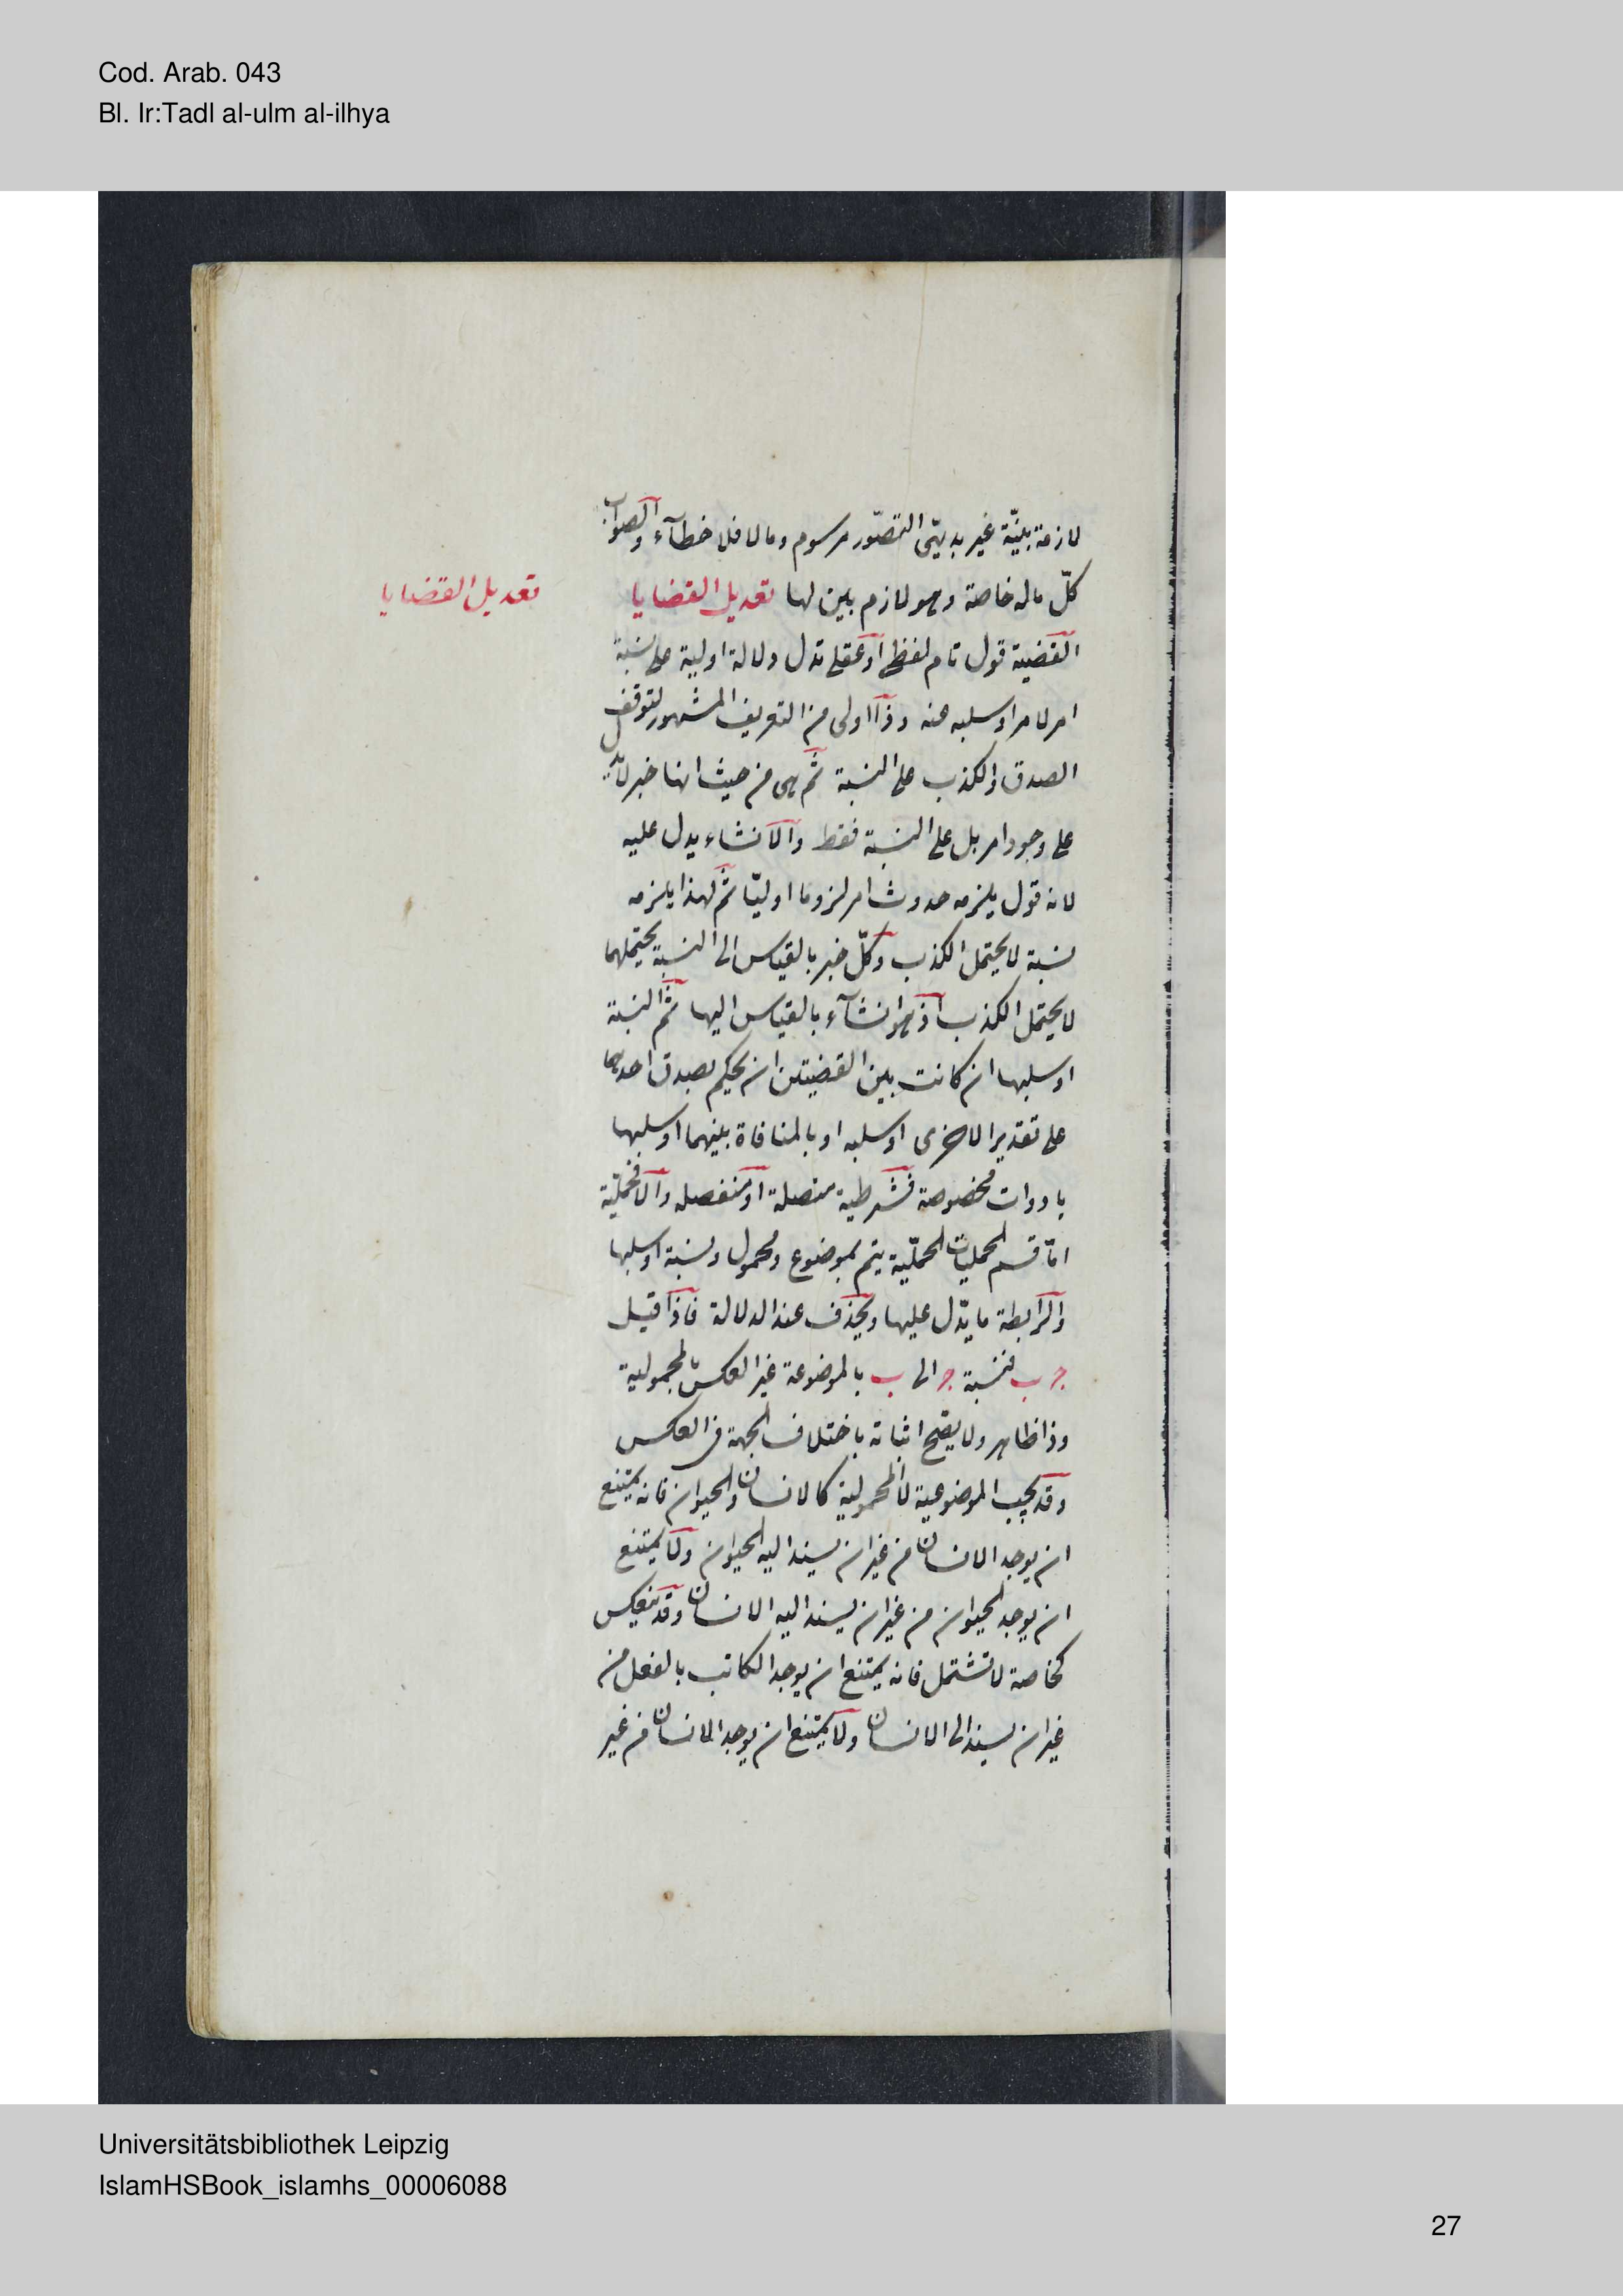 Cod. Arab. 043
Bl. Ir:Tadl al-ulm al-ilhya
لازمة بينّة غير بديهّى التصّور مرسوم ومالا فلا خطآء والصواب
كلّ ماله خاصة وهو لازم بين لها تعديل القضايا
تعديل القضايا
القضية قول تام لفظى او عقلى تدل دلالة اولية على نسبة
امر لامر او سلبه عنه وذا اولى من التعريف المشهور لتوقف
الصدق والكذب على النسبة ثم هى من حيث انها خبر لا يدل
على وجود امر بل على النسبة فقط والانشاء يدل عليه
لانه قول يلزمه حدوث امر لزوما اوليّا ثم لهذا يلزمه
نسبة لا يحتمل الكذب وكلّ خبر بالقياس الى النسبة يحتملهما
لا يحتمل الكذب اذ هو انشآء بالقياس اليها ثم النسبة
او سلبها ان كانت بين القضيتين ان يحكم بصدق احدهما
على تقدير الاخرى او سلبه او بالمنافاة بينهما او سلبها
بادوات مخصوصة فشرطية متصلة او منفصله والا فحمليّة
امّا قسم الحمليات الحمليّة يتم بموضوع ومحمول ونسبة او سلبها
والرابطة ما يدّل عليها ويحذف عند الدلالة فاذا قيل
ج ب فنسبة ج الى ب بالموضوعة غير العكس بالمحمولية
وذا ظاهر ولا يصح اثباته باختلاف الجهة فى العكس
وقد يجب الموضوعية لا المحمولية كالانسان والحيوان فانه يمتنع
ان يوجد الانسان من غير ان يسند اليه الحيوان ولا يمتنع
ان يوجد الحيوان من غير ان يسند اليه الانسان وقد ينعكس
كخاصة لا تشتمل فانه يمتنع ان يوجد الكاتب بالفعل من
غير ان يسند الى الانسان ولا يمتنع ان يوجد الانسان من غير
Universitätsbibliothek Leipzig
IslamHSBook_islamhs_00006088
27